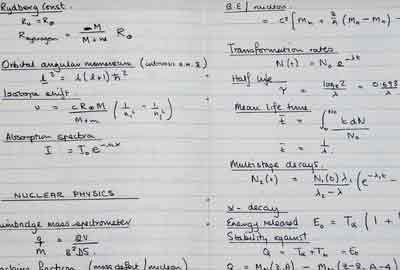 Rydberg Const.
R∞ = R∞
R hydrogen = M / M+m R∞
Orbital angular momentum
l² = l(l+1)ℏ²
Isotope shift
ν = cR∞M / M+m (1/n₁² - 1/n₂²)
Absorption spectra
I = I₀e^-
NUCLEAR PHYSICS
mass spectrometer
q/m = 2V / B²
fraction (mass defect / nucleon)
B.E/ nucleon
= c² [Mn + Z/A (MH - Mn) -
Transformation rates
N(t) = N₀ e^-λt
Half life
τ = loge2 / λ = 0.693
Mean life time
t̄ = ∫ t dN / N₀
t̄ = 1/λ
Multistage decays.
N₂(t) = N₁(0) λ₁ / λ₂ - λ₁ (e^-λ₁t -
α - decay
Energy released E₀ = Tα (1 +
Stability against
Q = Tα + Tb = E₀
Q = (Z,A) - (Z-2, A-4)